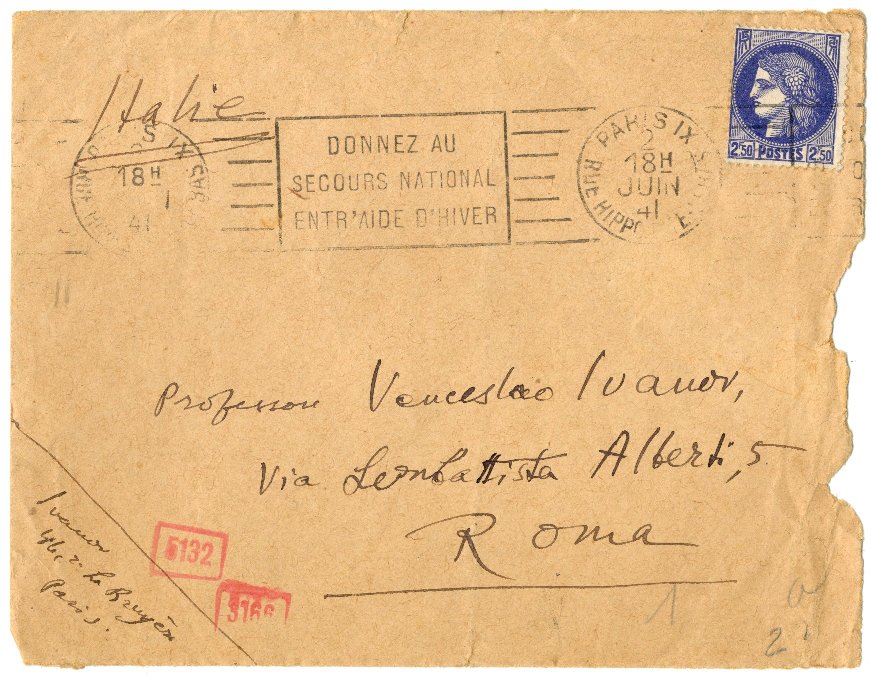 Italie
DONNEZ AU
SECOURS NATIONAL
ENTR'AIDE D'HIVER
18H
41
PARIS IX
2
18H
JUIN
41
RUE HIPPO
2F50 POSTES 2F50
Professore Venceslao Ivanov,
Via Leonbattista Alberti, 5
Roma
Ivanov
46, r. La Bruyère
Paris.
5132
3166
1
2